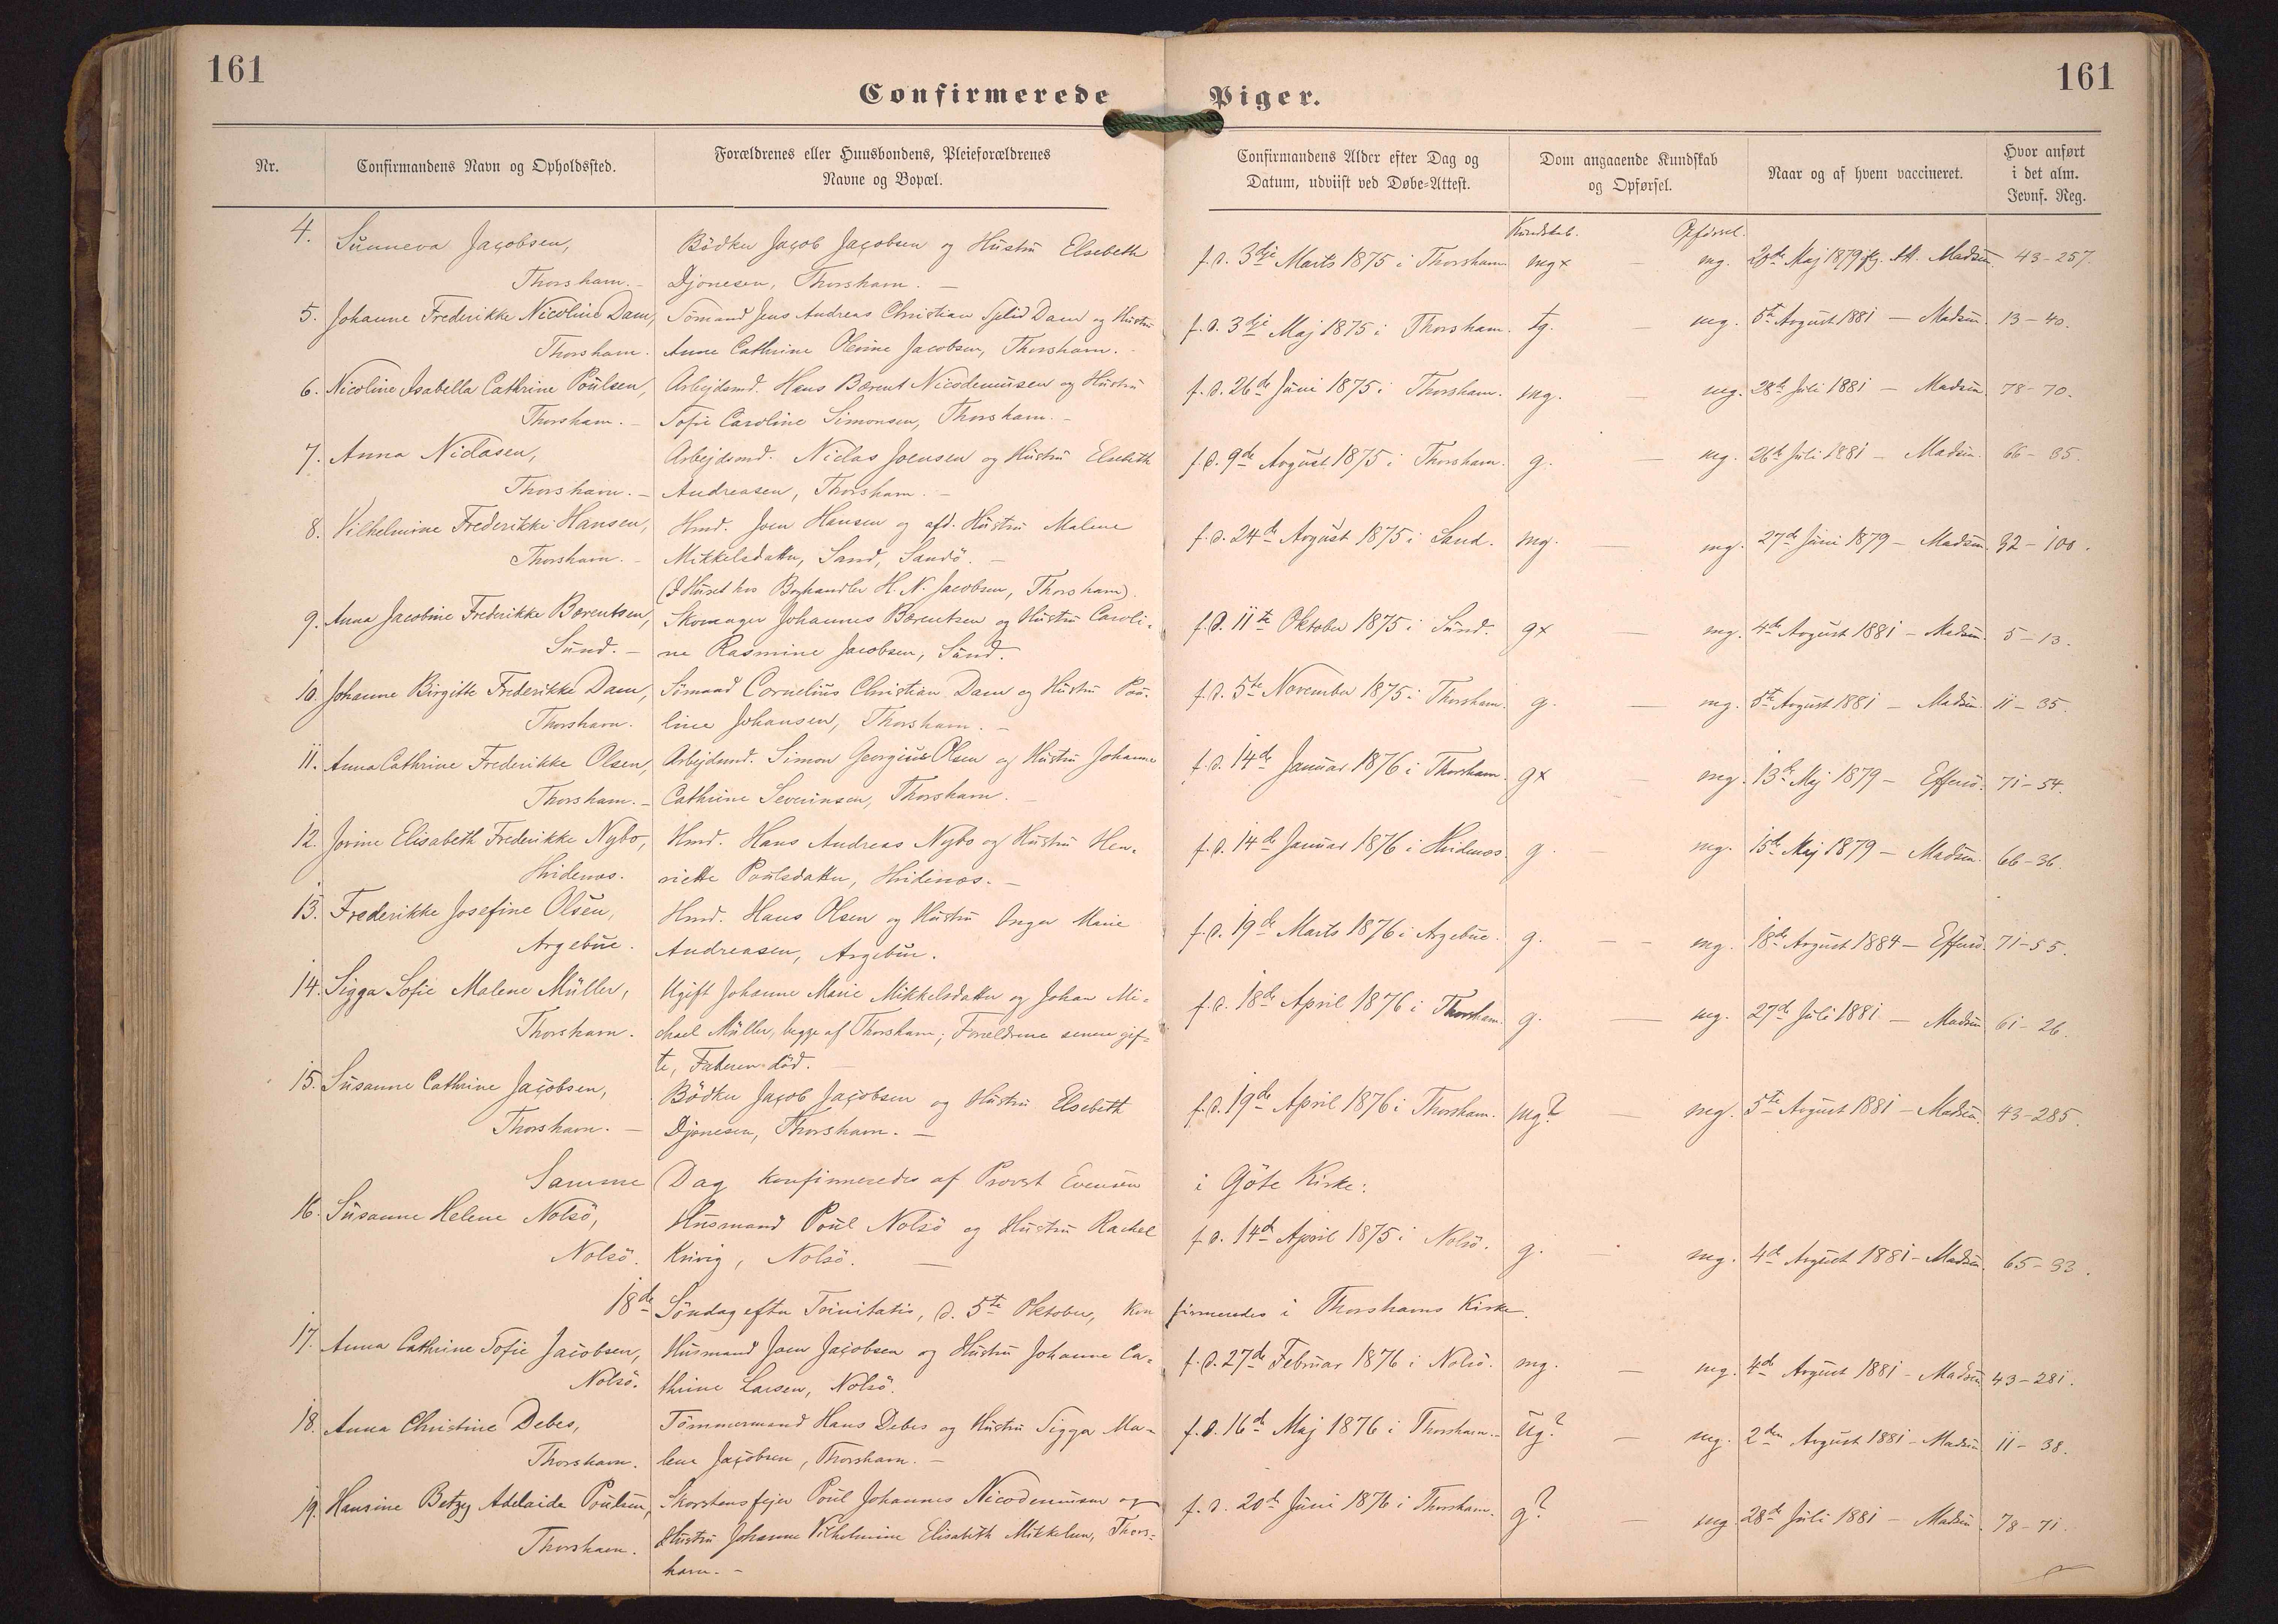 161
161
Confirmerede Piger.
Nr.
Confirmandens Navn og Opholdssted.
Forældrenes eller Huusbondens, Pleieforældrenes
Navne og Bopæl.
Confirmandens Alder efter Dag og
Datum, udviist ved Døbe-Attest.
Dom angaaende Kundskab
og Opførsel.
Naar og af hvem vaccineret.
Hvor anført
i det alm.
Jevnf. Reg.
Kundskab. Opförsel.
4. Sunneva Jacobsen, Bödker Jacob Jacobsen og Hustru Elsebeth f. d. 3die Marts 1875 i Thorshavn. mg× — mg. Maj 1879 Madsen. 43-257.
Thorshavn. — Djonesen, Thorshavn. —
5. Johanne Frederikke Nicoline Dam, Sömand Jens Andreas Christian Dam og Hustru f. d. 3die Maj 1875 i Thorshavn. tg. — mg. 5te August 1881 — Madsen. 13-40.
Thorshavn. Anne Cathrine Olevine Jacobsen, Thorshavn. -
6. Nicoline Isabella Cathrine Poulsen, Arbejdsmd. Hans Bærent Nicodemusen og Hustru f. d. 26de Juni 1875 i Thorshavn. mg. — mg. 28de Juli 1881 — Madsen. 78-70.
Thorshavn. — Sofie Caroline Simonsen, Thorshavn. -
7. Anna Niclasen, Arbejdsmd. Niclas Joensen og Hustru Elsebeth f. d. 9de August 1875 i Thorshavn. g. — mg. 26de Juli 1881 — Madsen. 66-35.
Thorshavn. — Andreasen, Thorshavn. —
8. Vilhelmine Frederikke Hansen, Hmd. Joen Hansen og afd. Hustru Malene f. d. 24de August 1875 i Sand. mg. — mg. 27de Juni 1879 — Madsen. 32-100.
Thorshavn. — Mikkelsdatter, Sand, Sandö. —
(I Huset hos Boghandler H. N. Jacobsen, Thorshavn).
9. Anna Jacobine Frederikke Bærentsen, Skomager Johannes Bærentsen og Hustru Caroli- f. d. 11te Oktober 1875 i Sund. g× — mg. 4de August 1881 — Madsen. 5-13.
Sund. — ne Rasmine Jacobsen, Sund.
10. Johanne Birgitte Frederikke Dam, Sömand Cornelius Christian Dam og Hustru Pou- f. d. 5te November 1875 i Thorshavn. g. — mg. 5te August 1881 — Madsen. 11-35.
Thorshavn. line Johansen, Thorshavn. —
11. Anna Cathrine Frederikke Olsen, Arbejdsmd. Simon Georgius Olsen og Hustru Johanne f. d. 14de Januar 1876 i Thorshavn. g× — mg. 13de Maj 1879 — Effersö. 71-54.
Thorshavn. — Cathrine Severinsen, Thorshavn. —
12. Jovine Elisabeth Frederikke Nybo, Hmd. Hans Andreas Nybo og Hustru Hen- f. d. 14de Januar 1876 i Hvidenæs. g. — mg. 15de Maj 1879 — Madsen. 66-36.
Hvidenæs. riette Poulsdatter, Hvidenæs. —
13. Frederikke Josefine Olsen, Hmd. Hans Olsen og Hustru Inger Marie f. d. 19de Marts 1876 i Argebue. g. — — mg. 18de August 1884 — Effersö. 71-55.
Argebue. Andreasen, Argebue.
14. Sigga Sofie Malene Müller, Ugift Johanne Marie Mikkelsdatter og Johan Mi- f. d. 18de April 1876 i Thorshavn. g. — mg. 27de Juli 1881 — Madsen 61-26.
Thorshavn. chael Müller, begge af Thorshavn; Forældrene senere gif-
te, Faderen död. —
15. Susanne Cathrine Jacobsen, Bödker Jacob Jacobsen og Hustru Elsebeth f. d. 19de April 1876 i Thorshavn. mg? — mg. 5te August 1881 — Madsen. 43-285.
Thorshavn. — Djonesen, Thorshavn. —
Samme Dag konfirmeredes af Provst Evensen i Göte Kirke:
16. Susanne Helene Nolsö, Husmand Poul Nolsö og Hustru Rachel f. d. 14de April 1875 i Nolsö. g. — mg. 4de August 1881 — Madsen. 65-33.
Nolsö. Nolsö. —
18de Söndag efter Trinitatis, d. 5te Oktober, kon firmeredes i Thorshavns Kirke.
17. Anna Cathrine Sofie Jacobsen, Husmand Joen Jacobsen og Hustru Johanne Ca- f. d. 27de Februar 1876 i Nolsö. mg. — mg. 4de August 1881 — Madsen 43-281.
Nolsö. thrine Larsen, Nolsö.
18. Anna Christine Debes, Tömmermand Hans Debes og Hustru Sigga Ma- f. d. 16de Maj 1876 i Thorshavn. ug? — mg. 2den August 1881 — Madsen 11-38.
Thorshavn. lene Jacobsen, Thorshavn. —
19. Hansine Betzy Adelaide Poulsen, Skorstensfejer Poul Johannes Nicodemusen og f. d. 20de Juni 1876 i Thorshavn. g? — mg. 28de Juli 1881 — Madsen. 78-71.
Thorshavn. Hustru Johanne Vilhelmine Elisabeth Mikkelsen, Thors-
havn. -